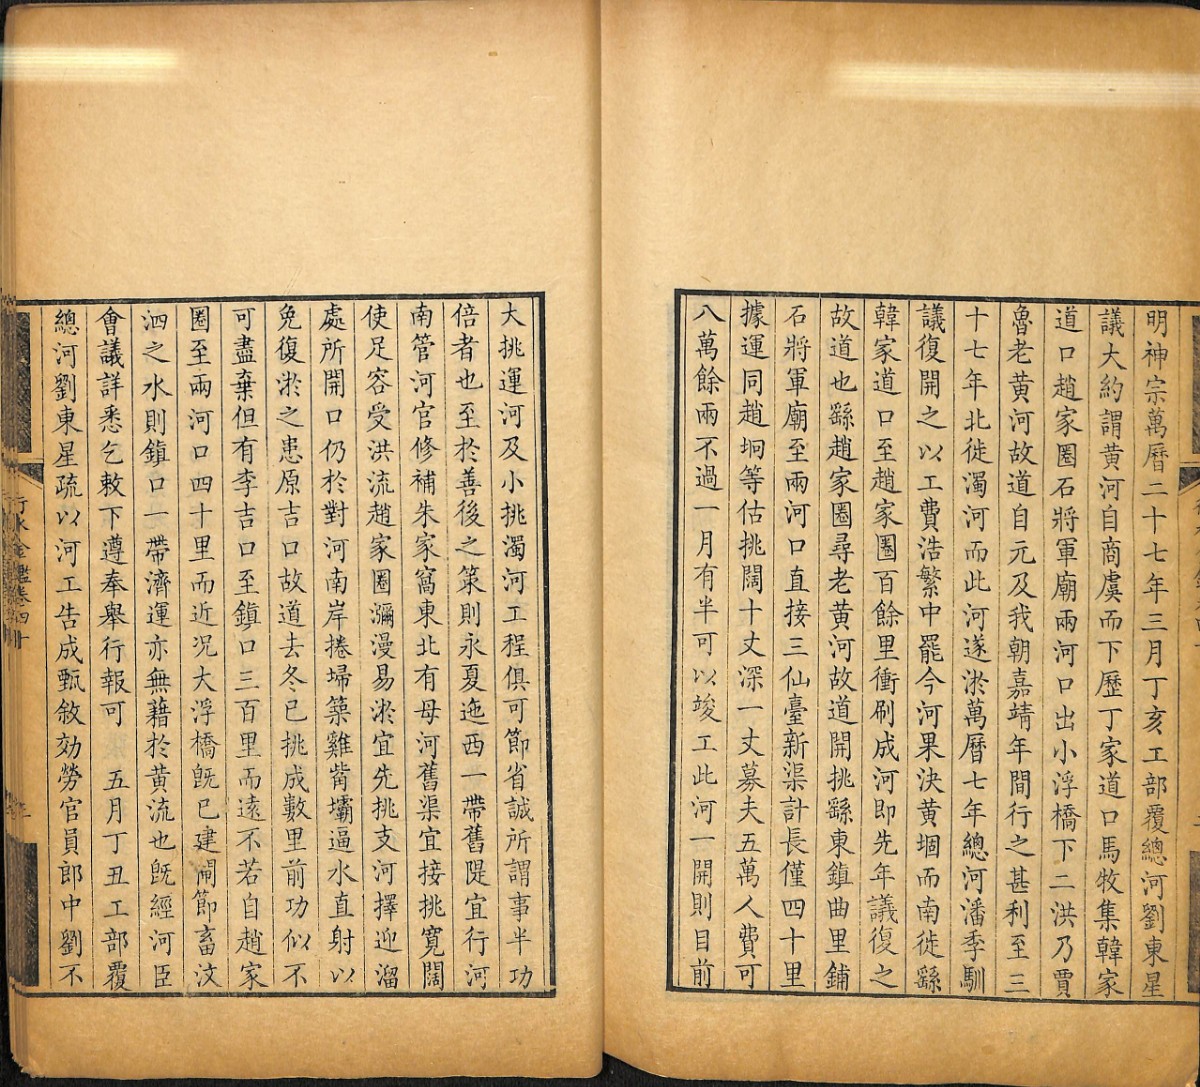 明神宗萬曆二十七年三月丁亥工部覆總河劉東星
議大約謂黄河自商虞而下歷丁家道口馬牧集韓家
道口趙家圈石將軍廟兩河口出小浮橋下二洪乃賈
魯老黄河故道自元及我朝嘉靖年間行之甚利至三
十七年北徙濁河而此河遂淤萬曆七年總河潘季馴
議復開之以工費浩繁中罷今河果決黄堌而南徙繇
韓家道口至趙家圈百餘里衝刷成河即先年議復之
故道也繇趙家圈尋老黄河故道開挑繇東鎮曲里鋪
石將軍廟至兩河口直接三仙臺新渠計長僅四十里
據運同趙坰等估挑闊十丈深一丈募夫五萬人費可
八萬餘兩不過一月有半可以竣工此河一開則目前
大挑運河及小挑濁河工程俱可節省誠所謂事半功
倍者也至於善後之策則永夏迤西一帶舊隄宜行河
南管河官修補朱家窩東北有母河舊渠宜接挑寛闊
使足容受洪流趙家圈瀰漫易淤宜先挑支河擇迎溜
處所開口仍於對河南岸捲埽築雞觜壩逼水直射以
免復淤之患原吉口故道去冬已挑成數里前功似不
可盡棄但有李吉口至鎮口三百里而遠不若自趙家
圈至兩河口四十里而近况大浮橋旣已建閘節畜汶
泗之水則鎮口一帶濟運亦無藉於黄流也旣經河臣
會議詳悉乞敕下遵奉舉行報可　五月丁丑工部覆
總河劉東星疏以河工告成甄敘効勞官員郎中劉不
行水金鑑卷四十